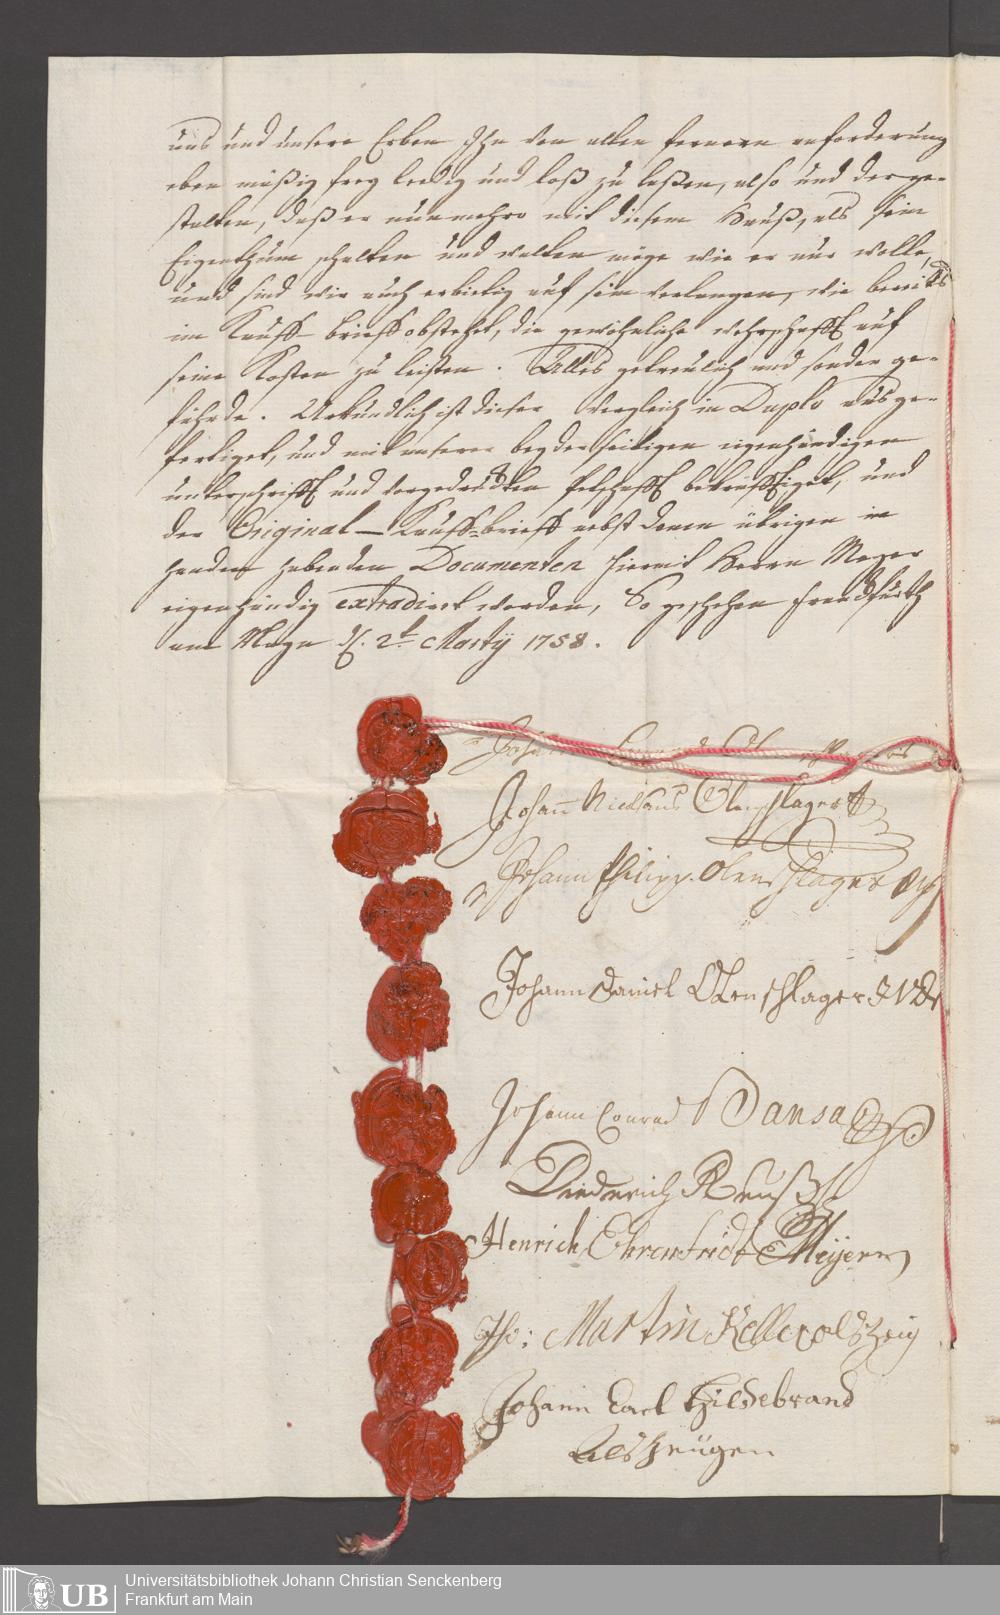 uns und unsere Erben Ihn von allen fernern anforderung
eben mäßig frey ledig und loß zu laßen, also und derge-
stalten, daß er nunmehro mit diesem Hauß, als sein
Eigenthum schalten und walten möge wie er nur wolle,
und sind wir auch erbietig auf sein verlangen, wie bereits
im Kauff brieff obstehet, die gewöhnliche wehrschafft auf
seine Kosten zu leisten. Alles getreulich und sonder ge-
fährde. Uhrkundlich ist dieser vergleich in Duplo ausge-
fertiget, und mit unserer beyderseitigen eigenhändigen
unterschrifft und vorgedruckten petschafft bekräfftiget, und
der Original-Kauff-brieff nebst denen übrigen in
handen habenden Documenten hiermit Herrn Meyer
eigenhändig extradirt worden, So geschehen Franckfurth
am Mayn d. 2t Martÿ 1758.
Johann
Johann Nicklaus Olenschlager
Johann Philipp Olenschlager
Johann Daniel Olenschlager JVD
Johann Conrad Bansa
Diederich Reuß
Henrich Ehrenfridt Meijer
Joh: Martin Keller als Zeüg
Johann Carl Hildebrand
Als Zeügen
UB
Universitätsbibliothek Johann Christian Senckenberg
Frankfurt am Main